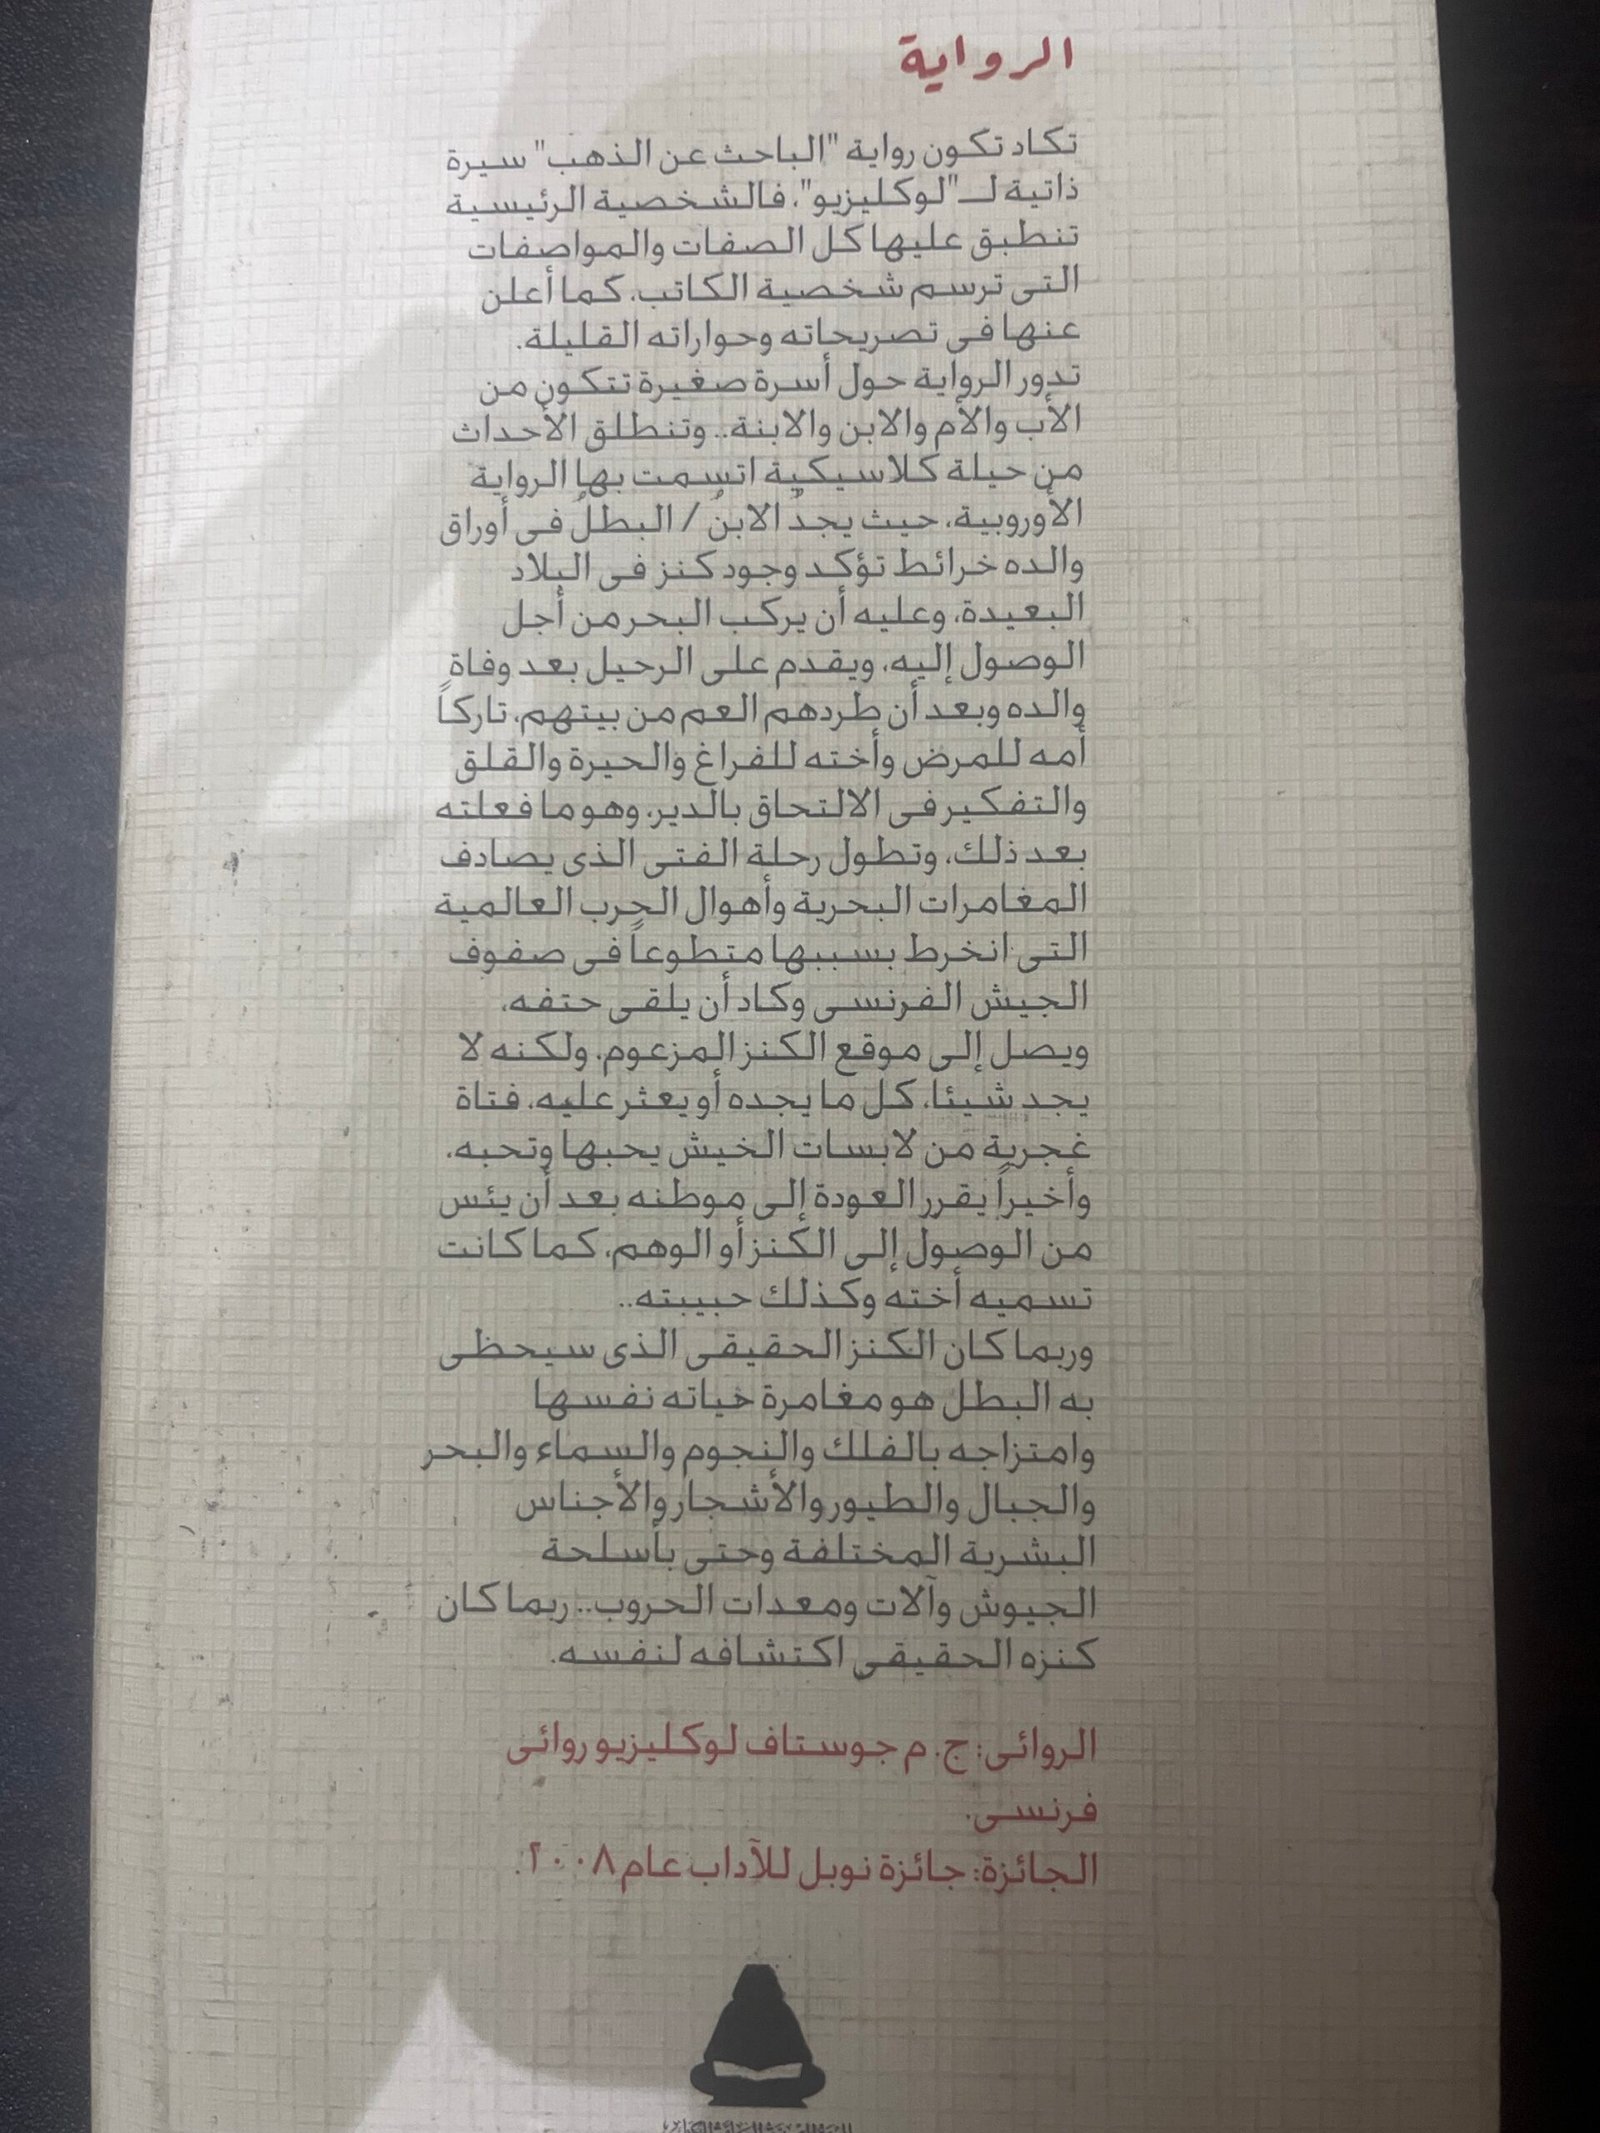 الرواية
تكاد تكون رواية "الباحث عن الذهب" سيرة
ذاتية لـ"لوكليزيو"، فالشخصية الرئيسية
تنطبق عليها كل الصفات والمواصفات
التى ترسم شخصية الكاتب، كما أعلن
عنها فى تصريحاته وحواراته القليلة.
تدور الرواية حول أسرة صغيرة تتكون من
الأب والأم والابن والابنة.. وتنطلق الأحداث
من حيلة كلاسيكية اتسمت بها الرواية
الأوروبية، حيث يجدُ الابنُ / البطلُ فى أوراق
والده خرائط تؤكد وجود كنز فى البلاد
البعيدة، وعليه أن يركب البحر من أجل
الوصول إليه، ويقدم على الرحيل بعد وفاة
والده وبعد أن طردهم العم من بيتهم، تاركاً
أمه للمرض وأخته للفراغ والحيرة والقلق
والتفكير فى الالتحاق بالدير، وهو ما فعلته
بعد ذلك، وتطول رحلة الفتى الذى يصادف
المغامرات البحرية وأهوال الحرب العالمية
التى انخرط بسببها متطوعاً فى صفوف
الجيش الفرنسى وكاد أن يلقى حتفه،
ويصل إلى موقع الكنز المزعوم، ولكنه لا
يجد شيئا، كل ما يجده أو يعثر عليه، فتاة
غجرية من لابسات الخيش يحبها وتحبه،
وأخيراً يقرر العودة إلى موطنه بعد أن يئس
من الوصول إلى الكنز أو الوهم، كما كانت
تسميه أخته وكذلك حبيبته..
وربما كان الكنز الحقيقى الذى سيحظى
به البطل هو مغامرة حياته نفسها
وامتزاجه بالفلك والنجوم والسماء والبحر
والجبال والطيور والأشجار والأجناس
البشرية المختلفة وحتى بأسلحة
الجيوش وآلات ومعدات الحروب.. ربما كان
كنزه الحقيقى اكتشافه لنفسه.
الروائى: ج. م جوستاف لوكليزيو روائى
فرنسى.
الجائزة: جائزة نوبل للآداب عام ٢٠٠٨.